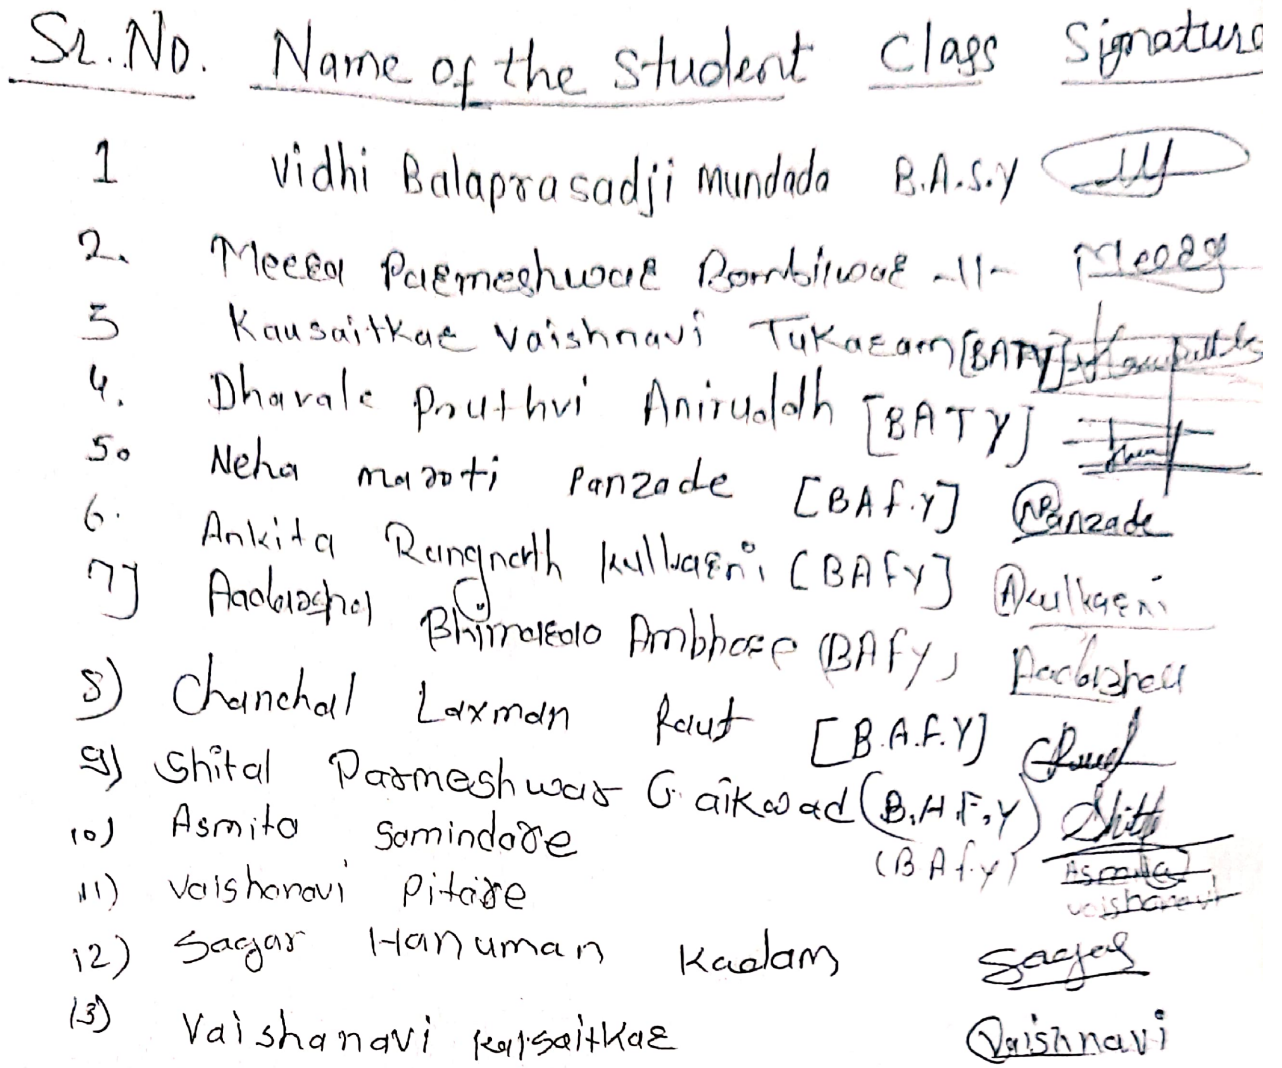 Sr. No. Name of the Student Class Signature
1 Vidhi Balaprasadji Mundada B.A.S.Y
2. Meera Parmeshwar Bombilwar -11- Meera
3 Kausaitkar Vaishnavi Tukaram [BATY]
4. Dharale Pruthvi Aniruddh [BATY]
5. Neha maroti Panzade [BAf.Y] NPanzade
6. Ankita Rangnath kulkarni (BAfY] Akulkarni
7] Aadarsha Bhimarao Ambhore (BAfY)
8) Chanchal Laxman Raut [B.A.F.Y]
9) Shital Parmeshwar Gaikwad (B.A.F.Y)
10) Asmita Samindare (BAf.y) Asmita
11) Vaishanavi Pitare vaishanavi
12) Sagar Hanuman Kadam Sagar
13) Vaishanavi Kausaitkar Vaishnavi